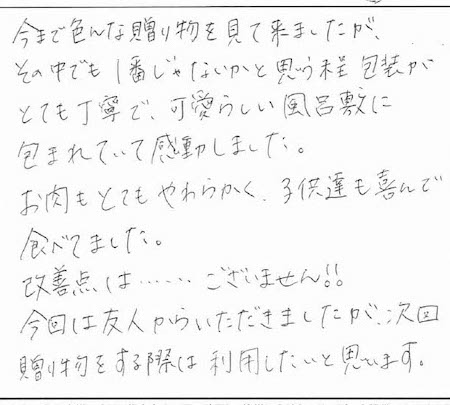 今まで色んな贈り物を見て来ましたが、
その中でも1番じゃないかと思う程包装が
とても丁寧で、可愛らしい風呂敷に
包まれていて感動しました。
お肉もとてもやわらかく、子供達も喜んで
食べてました。
改善点は……ございません!!
今回は友人からいただきましたが、次回
贈り物をする際は利用したいと思います。